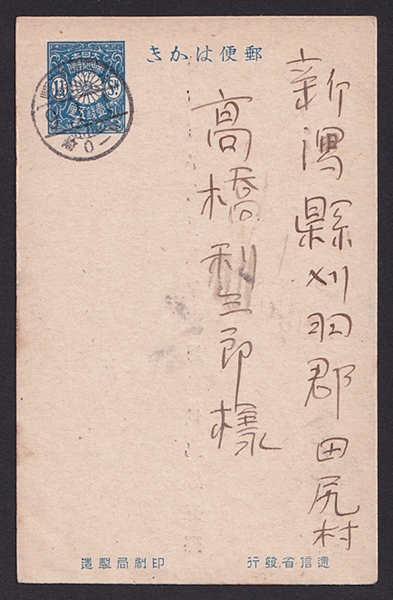 郵便はかき
新潟縣刈羽郡田尻村
高橋利三郎様
逓信省發行
印刷局製造